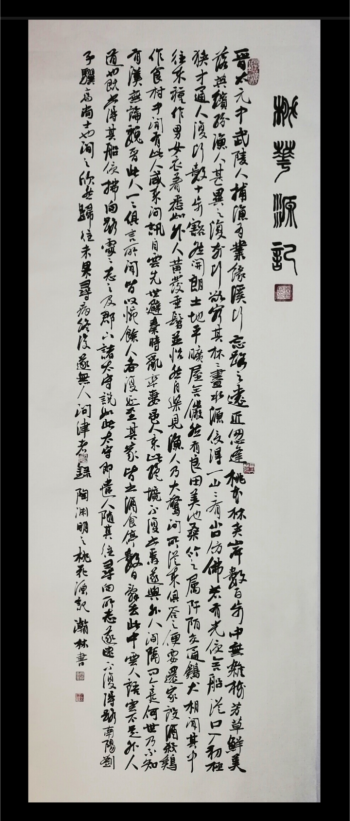 桃華源記
晉太元中武陵人捕漁為業緣溪行忘路之遠近忽逢桃花林夾岸數百步中無雜樹芳草鮮美
落英繽紛漁人甚異之復前行欲窮其林林盡水源便得一山山有小口仿佛若有光便舍船從口入初極
狹才通人復行數十步豁然開朗土地平曠屋舍儼然有良田美池桑竹之屬阡陌交通雞犬相聞其中
往來種作男女衣著悉如外人黃髮垂髫並怡然自樂見漁人乃大驚問所從來具答之便要還家設酒殺雞
作食村中聞有此人咸來問訊自云先世避秦時亂率妻子邑人來此絕境不復出焉遂與外人間隔問今是何世乃不知
有漢無論魏晉此人一一為具言所聞皆歎惋餘人各復延至其家皆出酒食停數日辭去此中人語云不足為外人
道也既出得其船便扶向路處處志之及郡下詣太守說如此太守即遣人隨其往尋向所志遂迷不復得路南陽劉
子驥高尚士也聞之欣然歸往未果尋病終後遂無人問津者 錄陶淵明之桃花源記 瀚林書